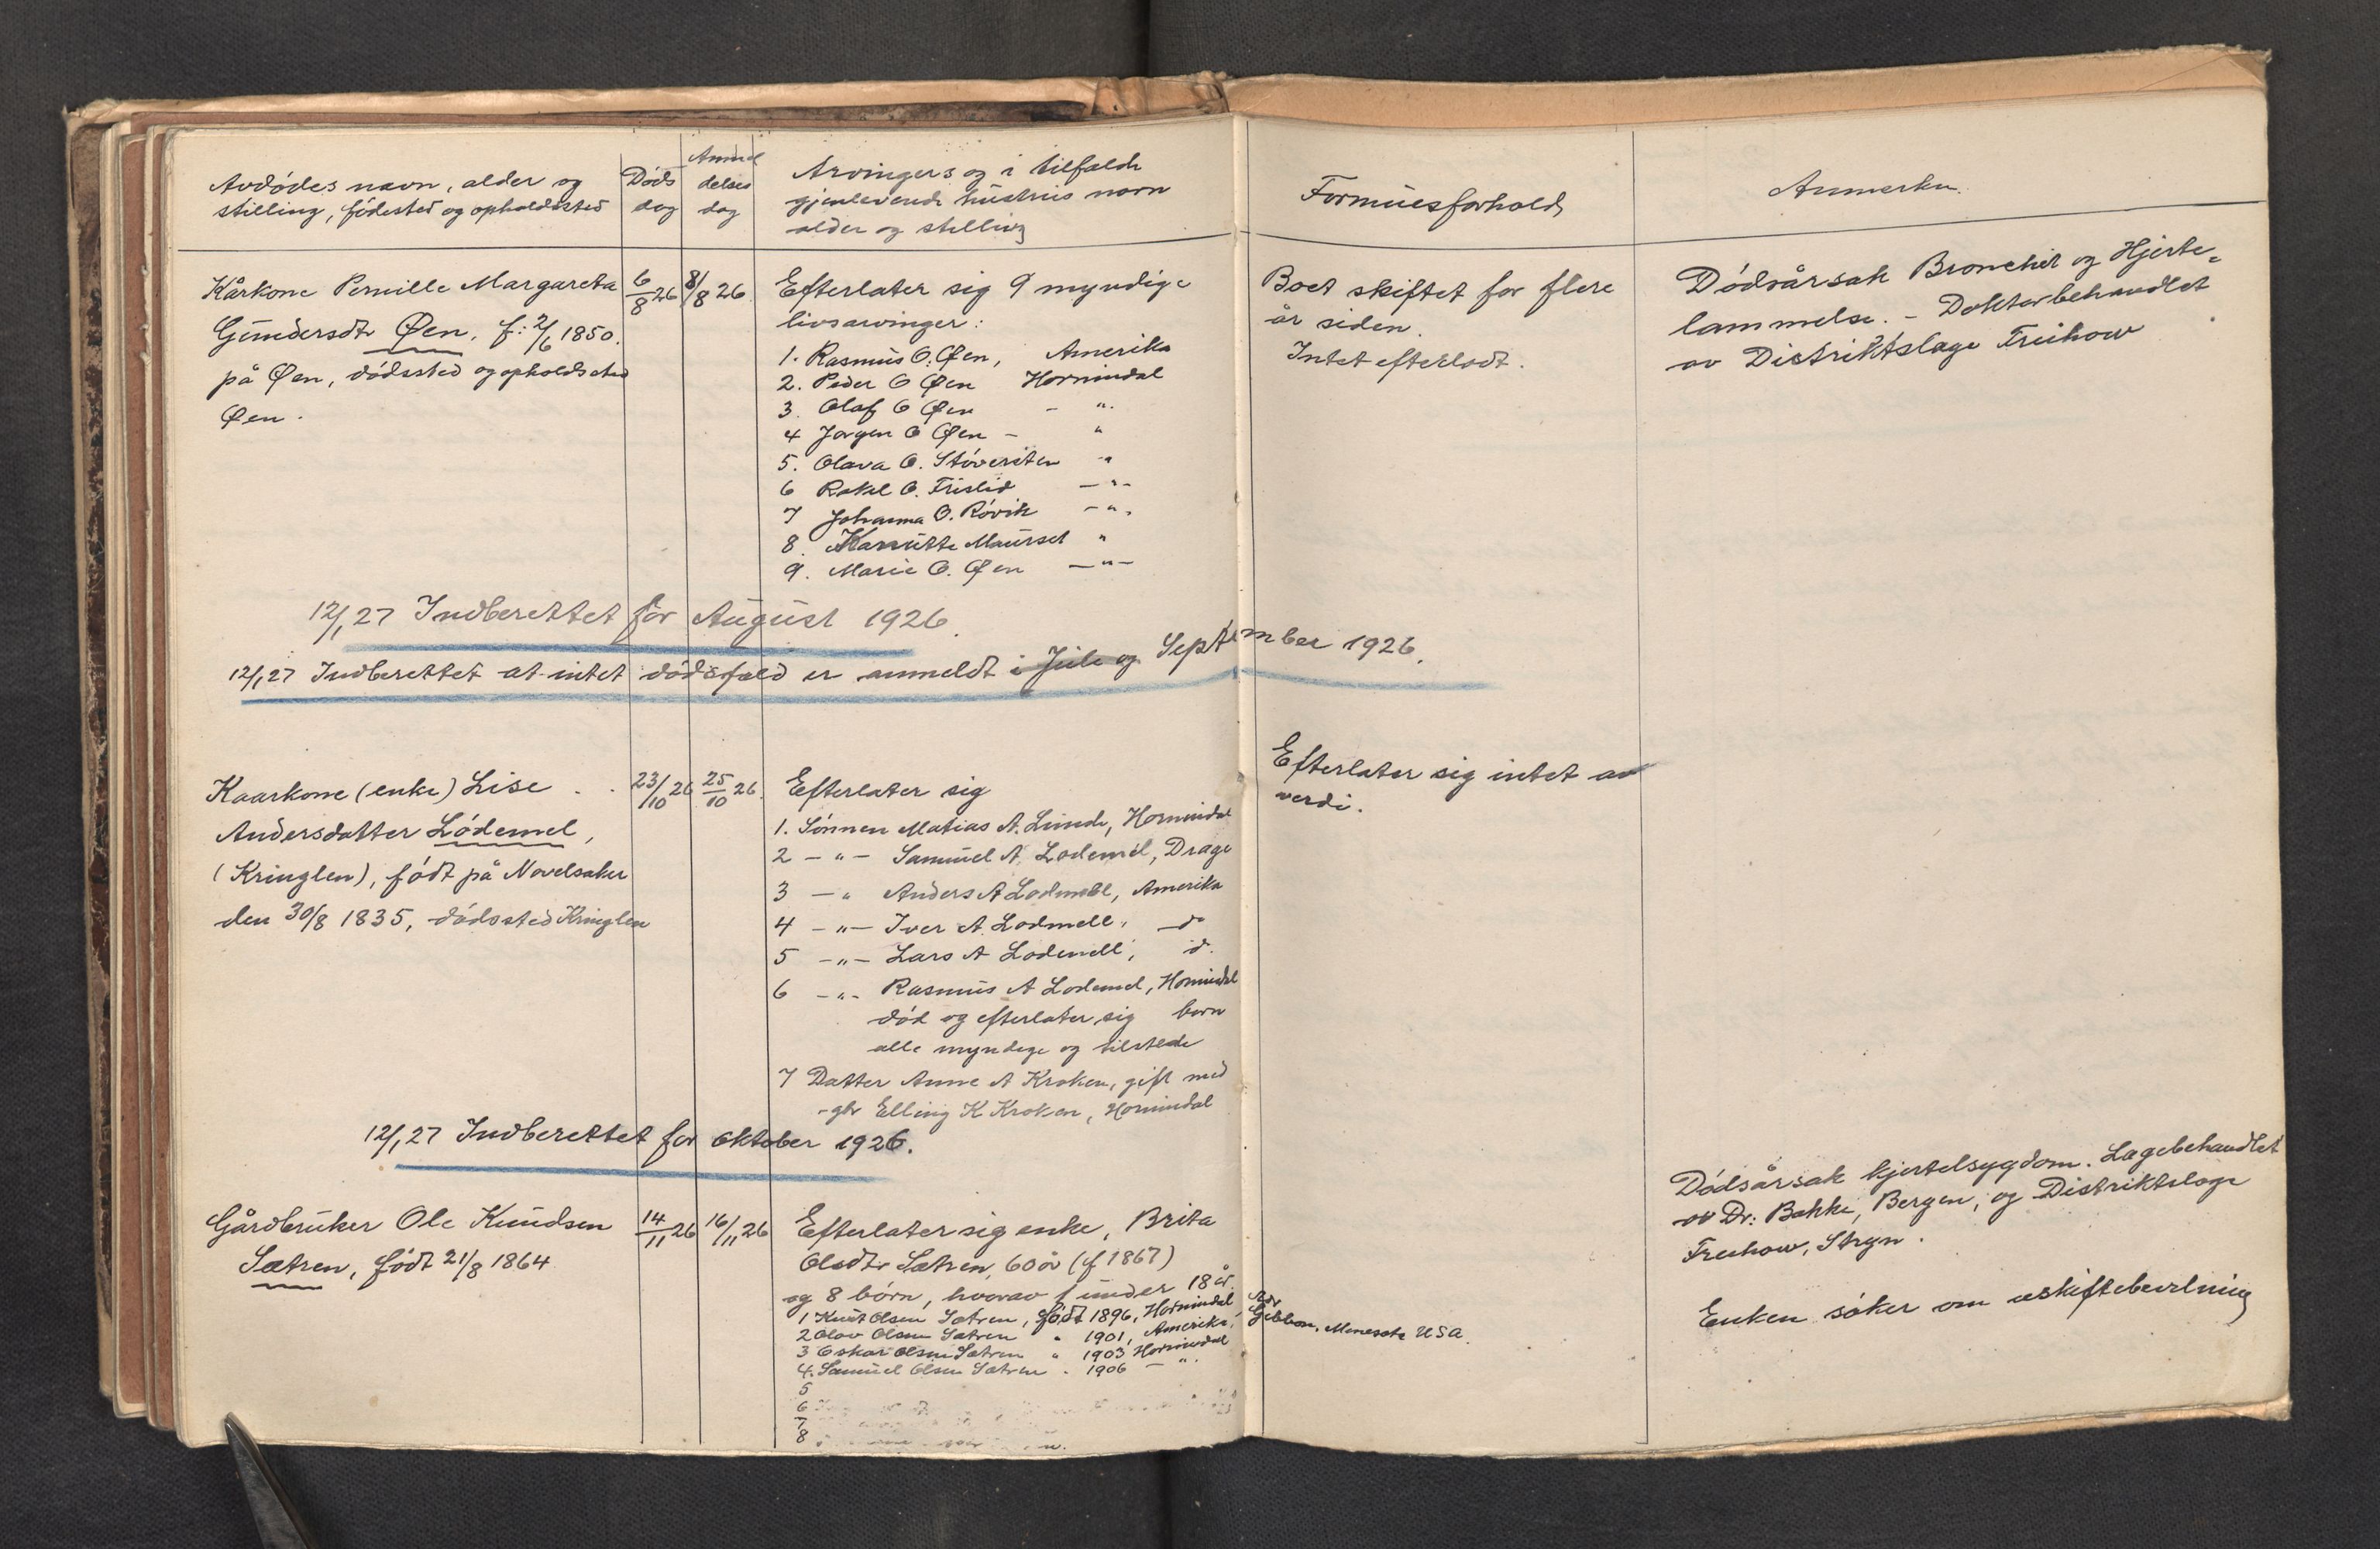 Avdödes navn, alder og
stilling, födested og opholdssted
Döds
dag
Anmel
delses
dag
Arvingers og i tilfælde
gjenlevende hustrus navn
alder og stilling
Formuesforhold
Anmerkn.
Kårkone Pernille Margareta
Gundersdtr Øen, f: 2/6 1850.
på Øen, dödssted og opholdssted
Øen.
6/8 26
8/8 26.
Efterlater sig 9 myndige
livsarvinger:
1. Rasmus O. Øen, Amerika
2. Peder O Øen Hornindal
3. Olaf O Øen - ".
4 Jorgen O Øen - "
5. Olava O. Stöversten "
6 Rakel O. Frislid - " -
7 Johanna O. Rövik - " -
8. Maurset "
9. Marie O. Øen - " -
Boet skiftet for flere
år siden.
Intet efterladt.
Dödsårsak Bronchit og Hjerte-
lammelse. - Doktorbehandlet
av Distriktslæge Freihow
12/1 27 Indberettet for August 1926.
12/1 27 Indberettet at intet dödsfald er anmeldt i Juli og September 1926.
Kaarkone (enke) Lise
Andersdatter Lödemel,
(Kringlen), födt på Navelsaker
den 30/8 1835, dödssted Kringlen
23/10 26
25/10 26.
Efterlater sig
1. Sönnen Matias A. Lunde, Hornindal
2 - " - Samuel A. Lodemel, Drage
3 - " Anders A Lodmell, Amerika
4 - " - Iver A. Lodmell, do
5 - " - Lars A Lodmell, d.
6 - " - Rasmus A Lodemel, Hornindal
död og efterlater sig born
alle myndige og tilstede
7 Datter Anne A Kroken, gift med
gbr Elling K Kroken, Hornindal
Efterlater sig intet av
verdi.
12/1 27 Indberettet for oktober 1926.
Gårdbruker Ole Knudsen
Sætren, födt 21/8 1864
14/11 26
16/11 26
Efterlater sig enke, Brita
Olsdtr Sætren, 60 år (f 1867)
og 8 börn, hvorav 1 under 18 år.
1 Knut Olsen Sætren, födt 1896, Hornindal
2 Olav Olsen Sætren " 1901, Amerika, Adr Gibbon, Menesota USA.
3 Oskar Olsen Sætren " 1903 Hornindal
4. Samuel Olsen Sætren . 1906 - " .
5
6
7
8
Dödsårsak kjertelsygdom. Lægebehandlet
av Dr: Bakke, Bergen, og Distriktslæge
Freihow, Stryn.
Enken söker om uskiftebevilning